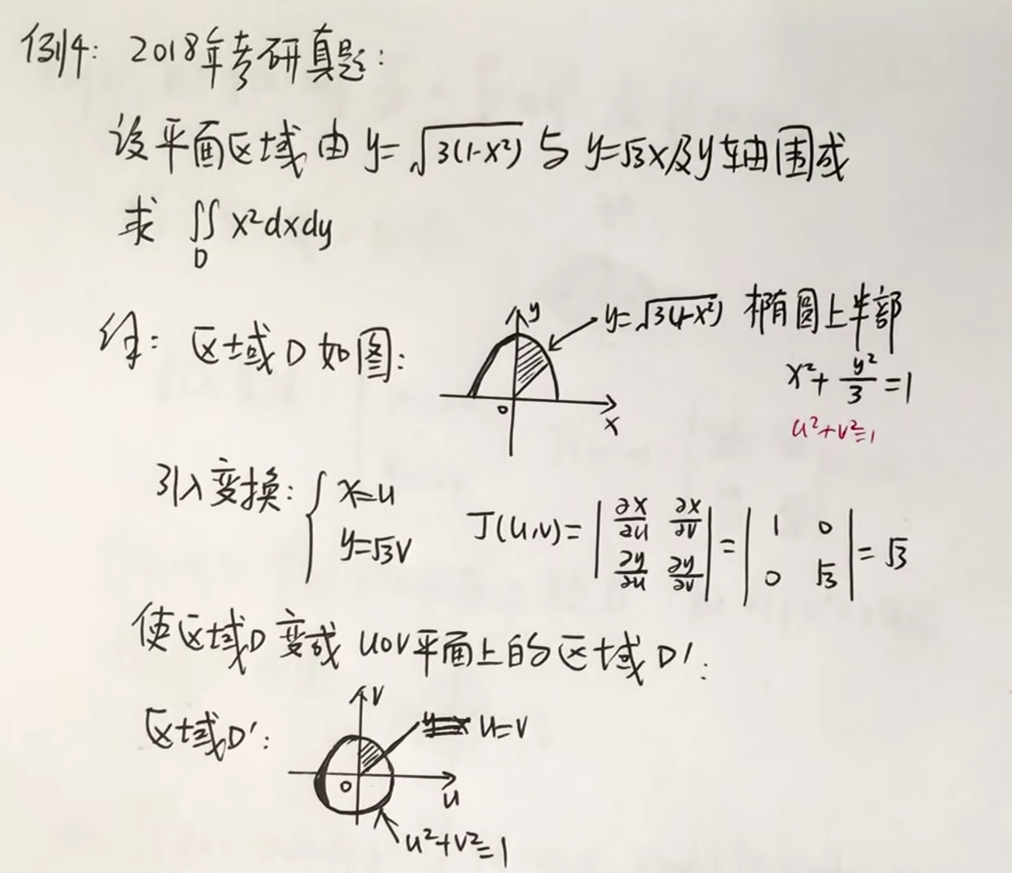 例4: 2018年考研真题:
设平面区域由 y=√3(1-x²) 与 y=√3x及y轴围成
求 ∬ x²dxdy
D
解: 区域D如图:
y
y=√3(1-x²) 椭圆上半部
x²+y²/3=1
u²+v²=1
0
x
引入变换: { x=u
y=√3v
J(u,v)= | ∂x/∂u ∂x/∂v | = | 1 0 | =√3
| ∂y/∂u ∂y/∂v | | 0 √3 |
使区域D变成 uov平面上的区域D′:
v
区域D′:
u=v
0
u
u²+v²=1